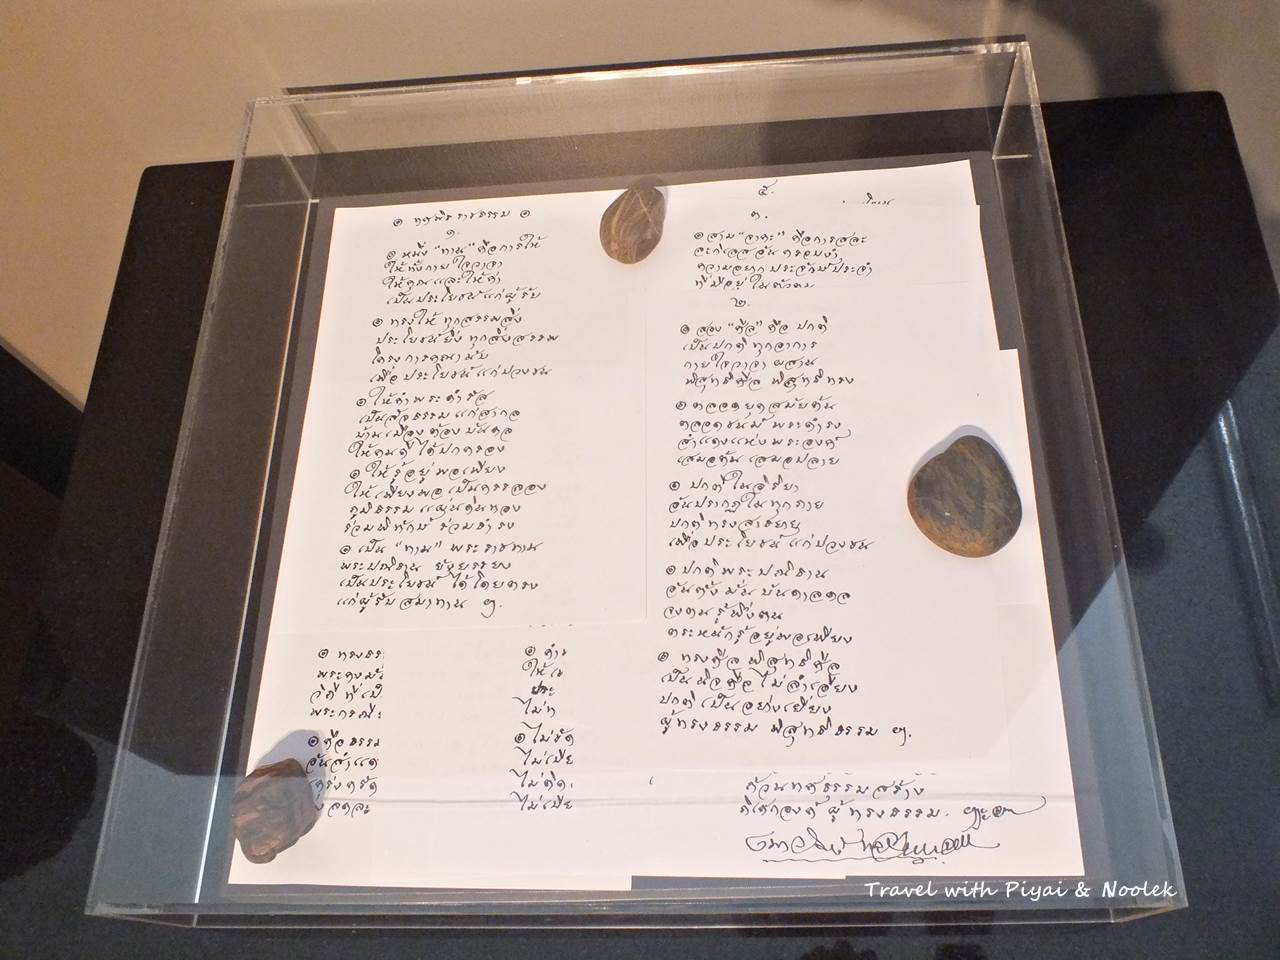 ๏ ทศพิธราชธรรม ๏
๑.
๏ หนึ่ง "ทาน" คือการให้
ให้ทั้งกายใจวาจา
ให้คุณและให้ค่า
เป็นประโยชน์แก่ผู้รับ
๏ ทรงให้ทุกสรรพสิ่ง
ประโยชน์ยิ่งทุกสิ่งสรรพ
โครงการคณานับ
เพื่อประโยชน์แก่ปวงชน
๏ ให้คำพระดำรัส
เป็นสัจธรรมแก่สากล
บ้านเมืองต้องบันดล
ให้คนดีได้ปกครอง
๏ ให้รู้อยู่พอเพียง
ให้เพียงพอเป็นครรลอง
ภูมิธรรมแผ่นดินทอง
ร่วมพิทักษ์ร่วมดำรง
๏ เป็น "ทาน" พระราชทาน
พระปณิธาน
เป็นประโยชน์ได้โดยตรง
แก่ผู้รับสมาทาน ฯ.
๏ ทรงธร
พระคง
วิถีที่เป็
พระกรณี
๏ คือธรรม
อันสำแด
๏ ดำ
ให้เ
ประ
ไม่ท
๏ ไม่ขัด
ไม่เบีย
ไม่คิด
ไม่เบีย
๕.
๓.
๏ สาม "จาคะ" คือการสละ
ละกิเลสอันครอบงำ
ความอยากประจักษ์ประจำ
ที่มีอยู่ในตัวตน
๒.
๏ สอง "ศีล" คือปกติ
เป็นปกติทุกอาการ
กายใจวาจาผสาน
พิสุทธิ์ศีลพิสุทธิ์ทรง
๏ ตลอดยุคสมัยต้น
ตลอดชนม์พระดำรง
สำแดงแห่งพระองค์
เสมอต้นเสมอปลาย
๏ ปกติในอิริยา
อันปรากฏในทุกภาย
ปกติทรง
เพื่อประโยชน์แก่ปวงชน
๏ ปกติพระปณิธาน
อันตั้งมั่นบันดาลดล
จงตนรู้พึ่งตน
ตระหนักรู้อยู่พอเพียง
๏ ทรงศีลพิสุทธิ์ศีล
เป็นนิจศีลไม่ลำเอียง
ปกติเป็นอย่างเยี่ยง
ผู้ทรงธรรมพิสุทธิ์ธรรม ฯ.
ผู้ทรงธรรม.
Travel with Piyai & Noolek